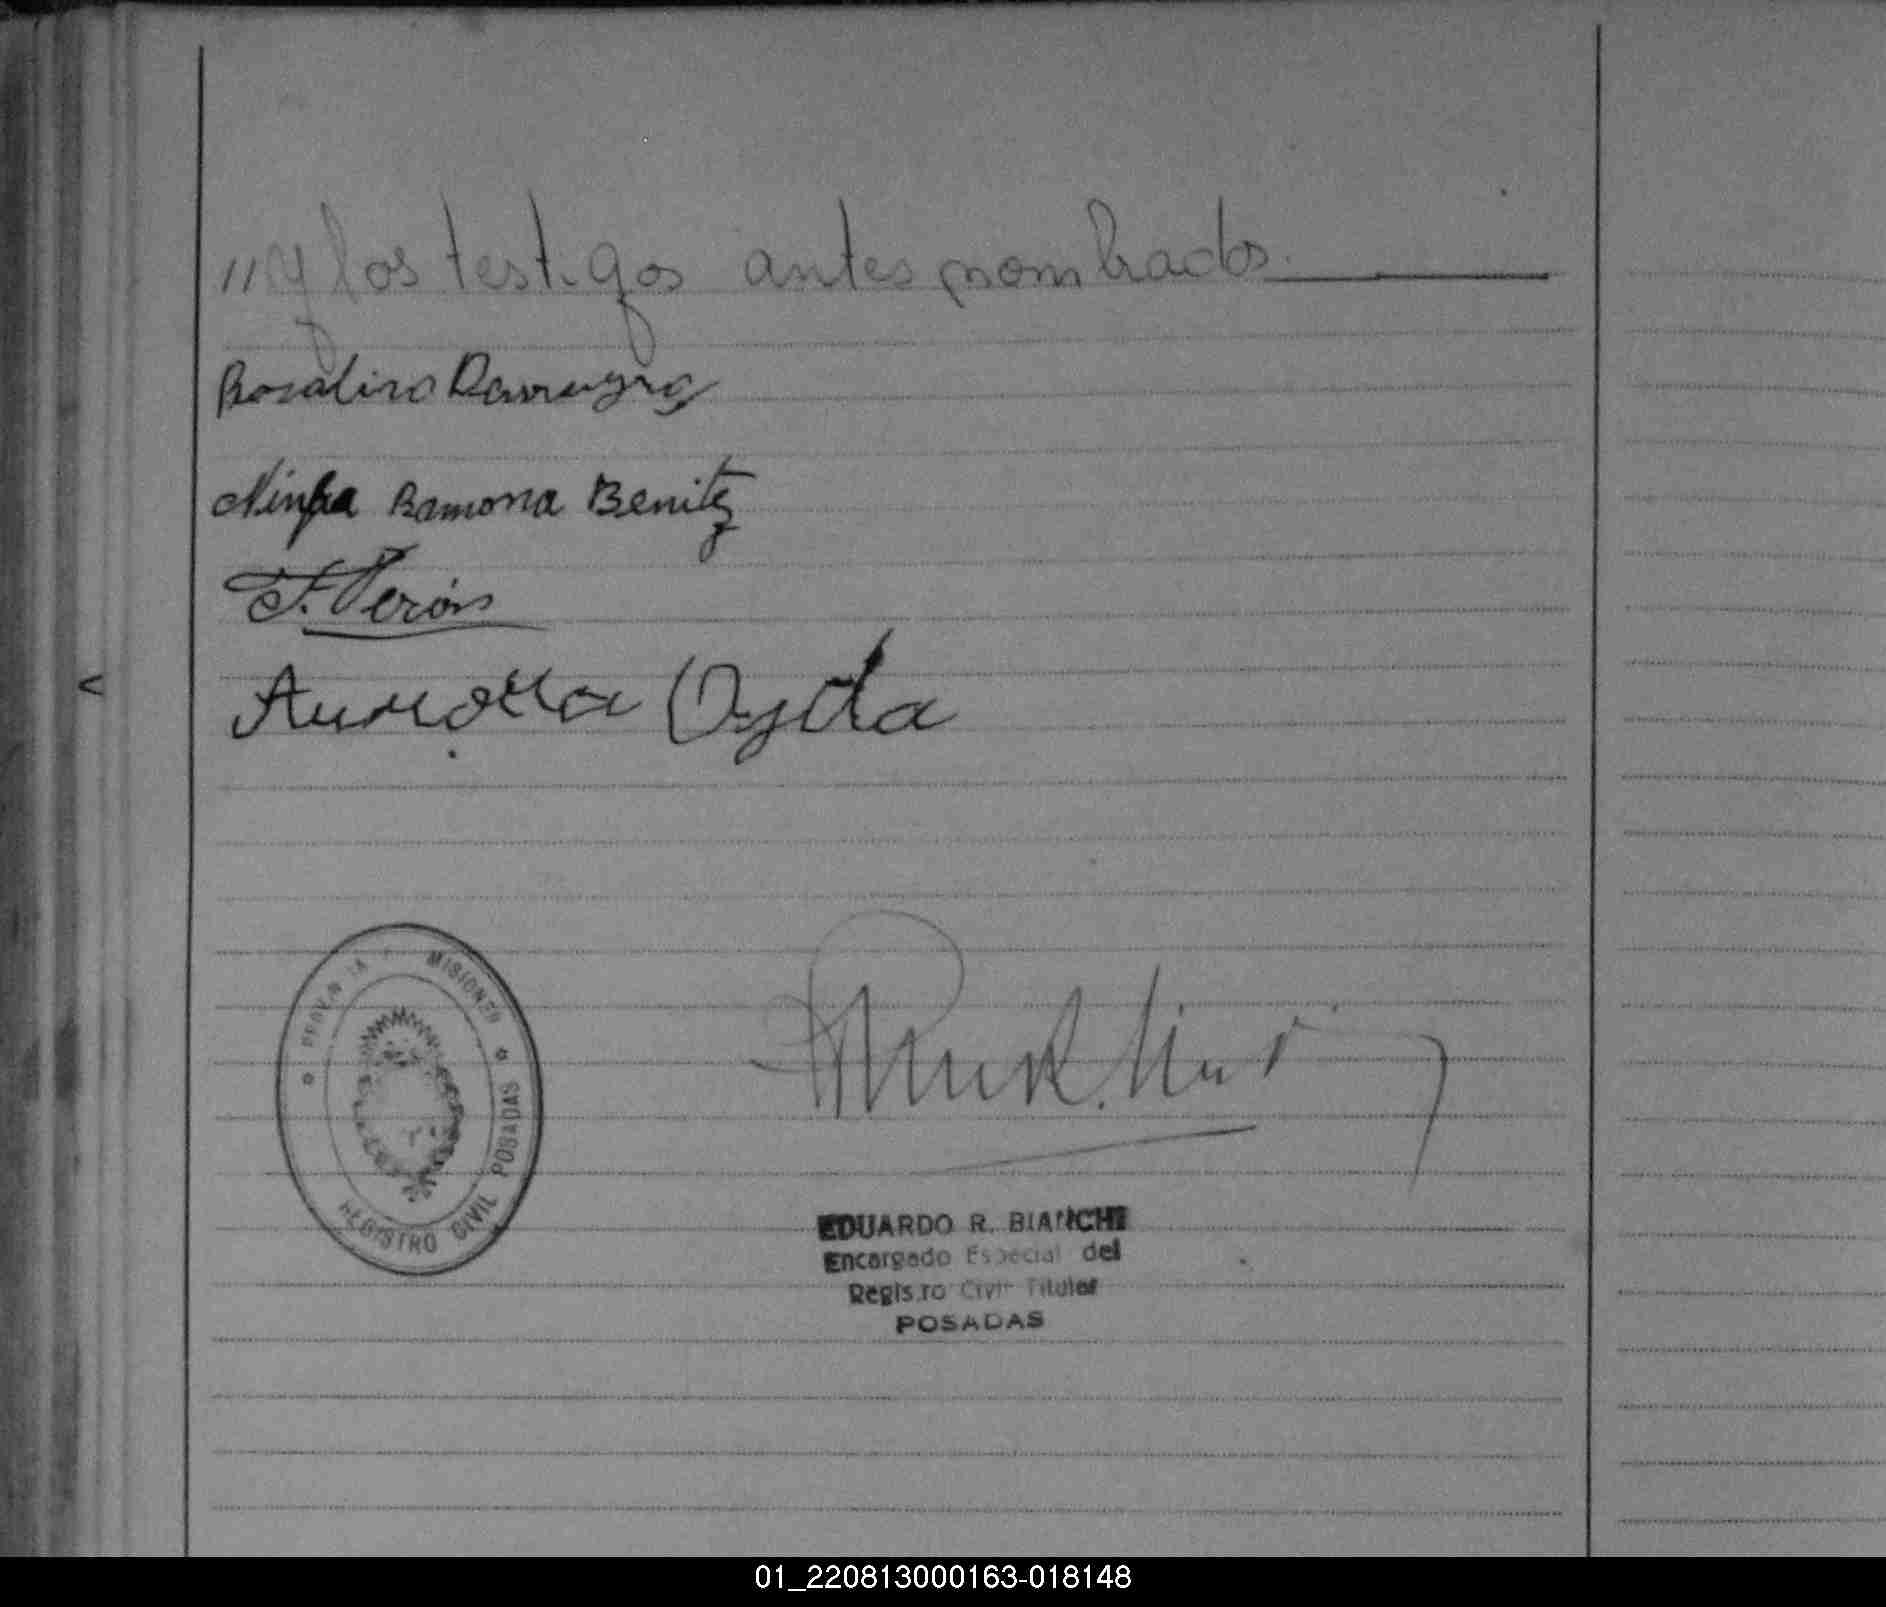 "y los testigos antes nombrados.
Rosalino
Ninfa Ramona Benitez
F. Verón
Aurora Ojeda
PROVINCIA MISIONES
REGISTRO CIVIL POSADAS
EDUARDO R. BIANCHI
Encargado Especial del
Registro Civil Titular
POSADAS
01_220813000163-018148